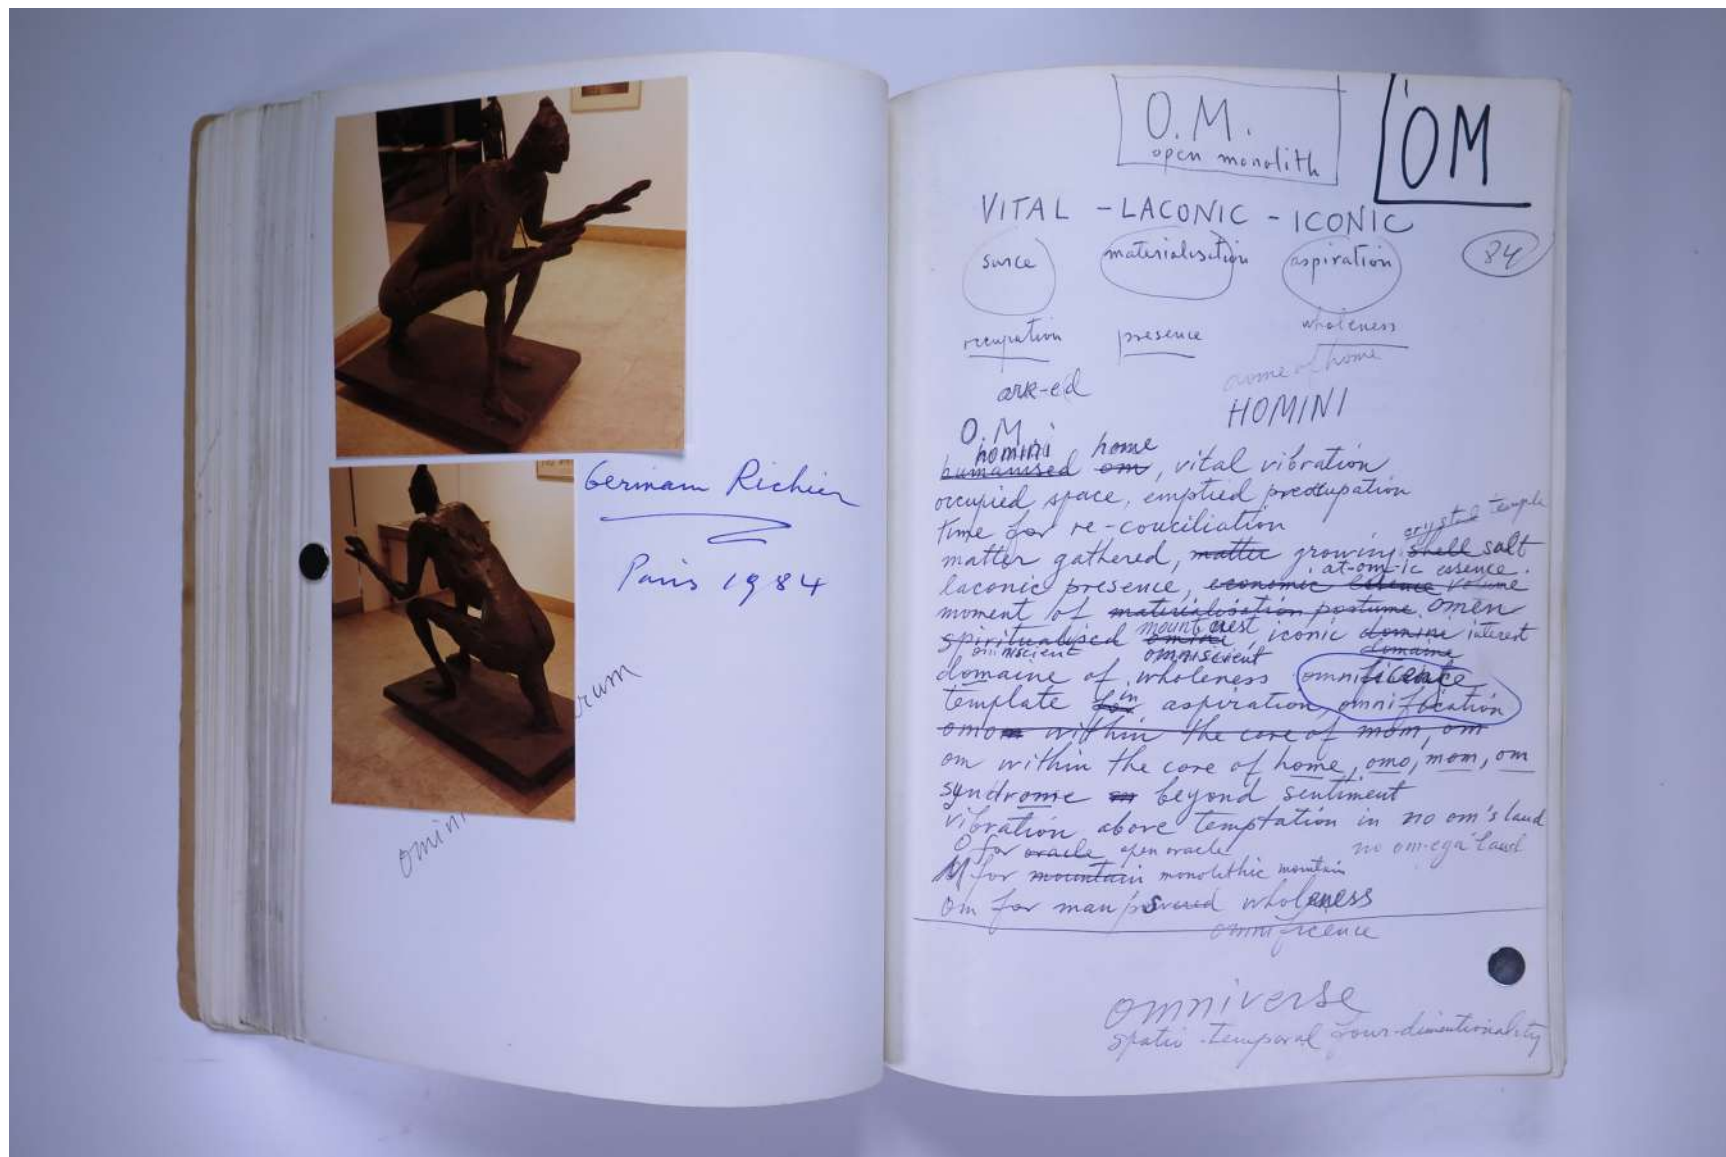 Germain Richier
Paris 1984
omini
rum
O.M.
open monolith
OM
VITAL - LACONIC - ICONIC
84
surce materialisation aspiration
occupation presence wholeness
ark-ed
dome of home
HOMINI
O.M.
homini home
humanised om, vital vibration
occupied space, emptied preoccupation
time for re-conciliation
crystal temple
matter gathered, matter growing shell salt
at-om-ic essence.
laconic presence, economic essence volume
moment of materialisation posture omen
mount crest
spiritualised omine, iconic domine interest
omniscient omniscient domaine
domaine of wholeness omnificence
template for in aspiration, omnification
omom within the core of mom, om
om within the core of home, omo, mom, om
syndrome beyond sentiment
vibration above temptation in no om's land
O for oracle open oracle no om-ega land
M for mountain monolithic mountain
Om for man's wholeness
omnificence
omniverse
spatio-temporal four-dimentionality